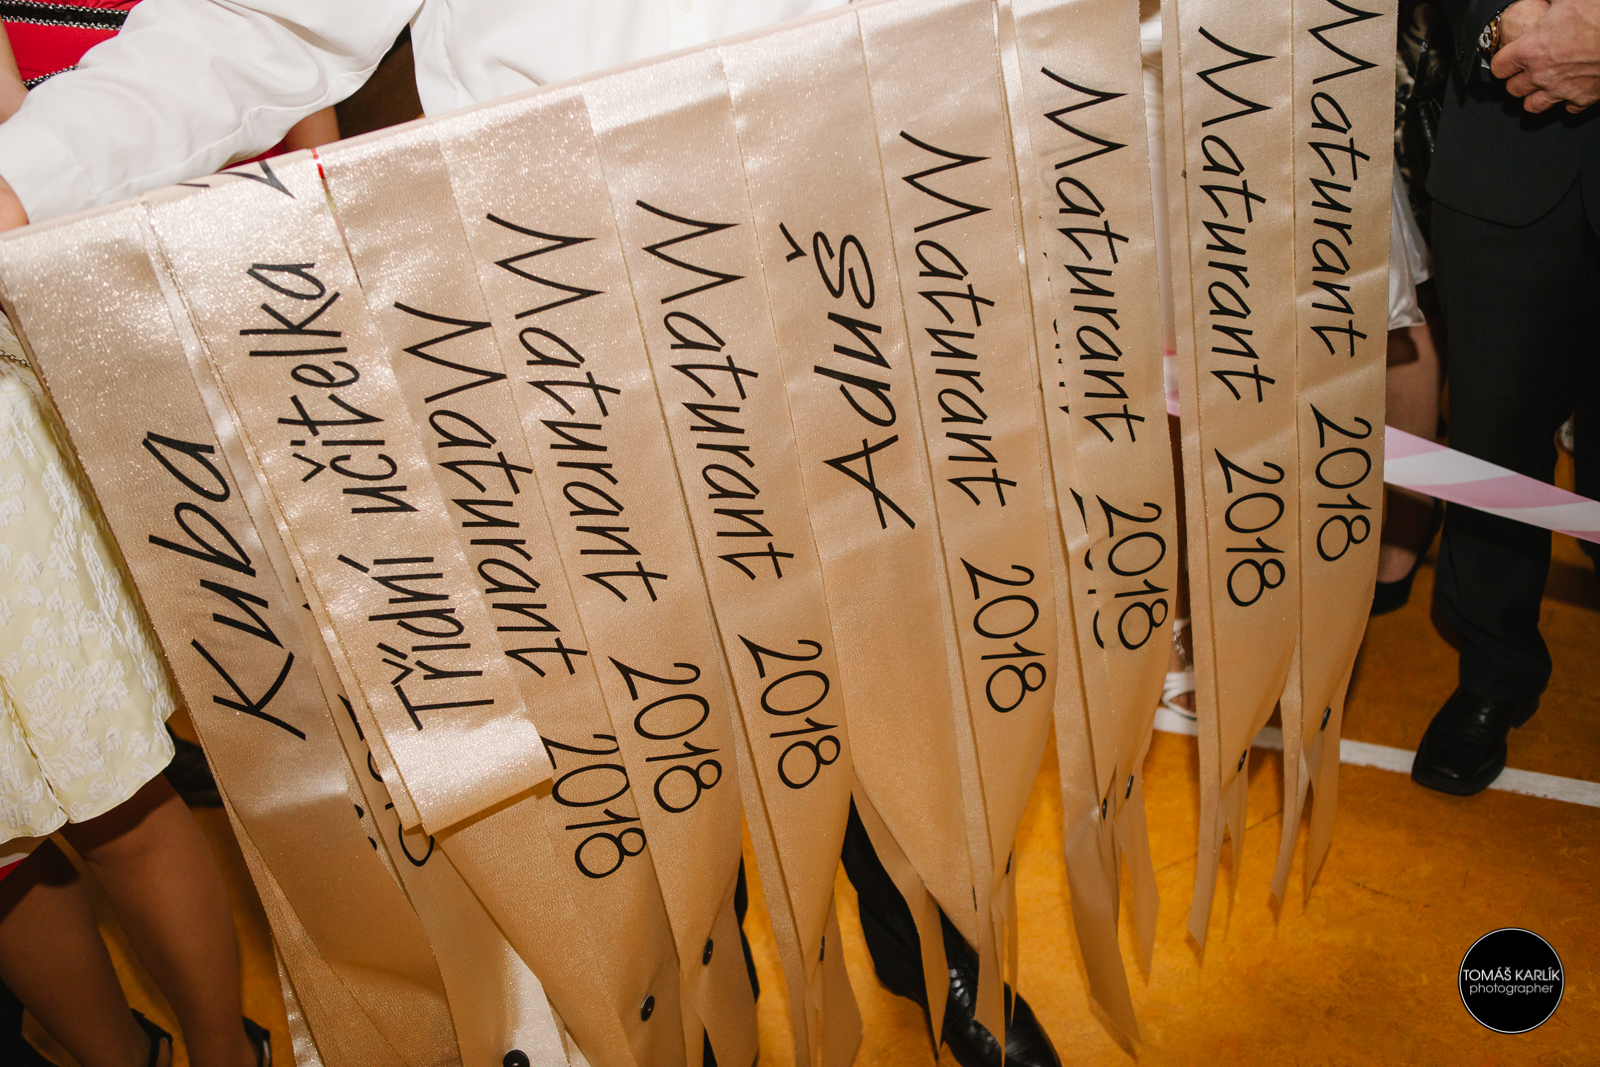 Kuba
Třídní učitelka
Maturant 2018
Maturant 2018
Maturant 2018
Aduš
Maturant 2018
Maturant 2018
Maturant 2018
Maturant 2018
TOMÁŠ KARLÍK
photographer